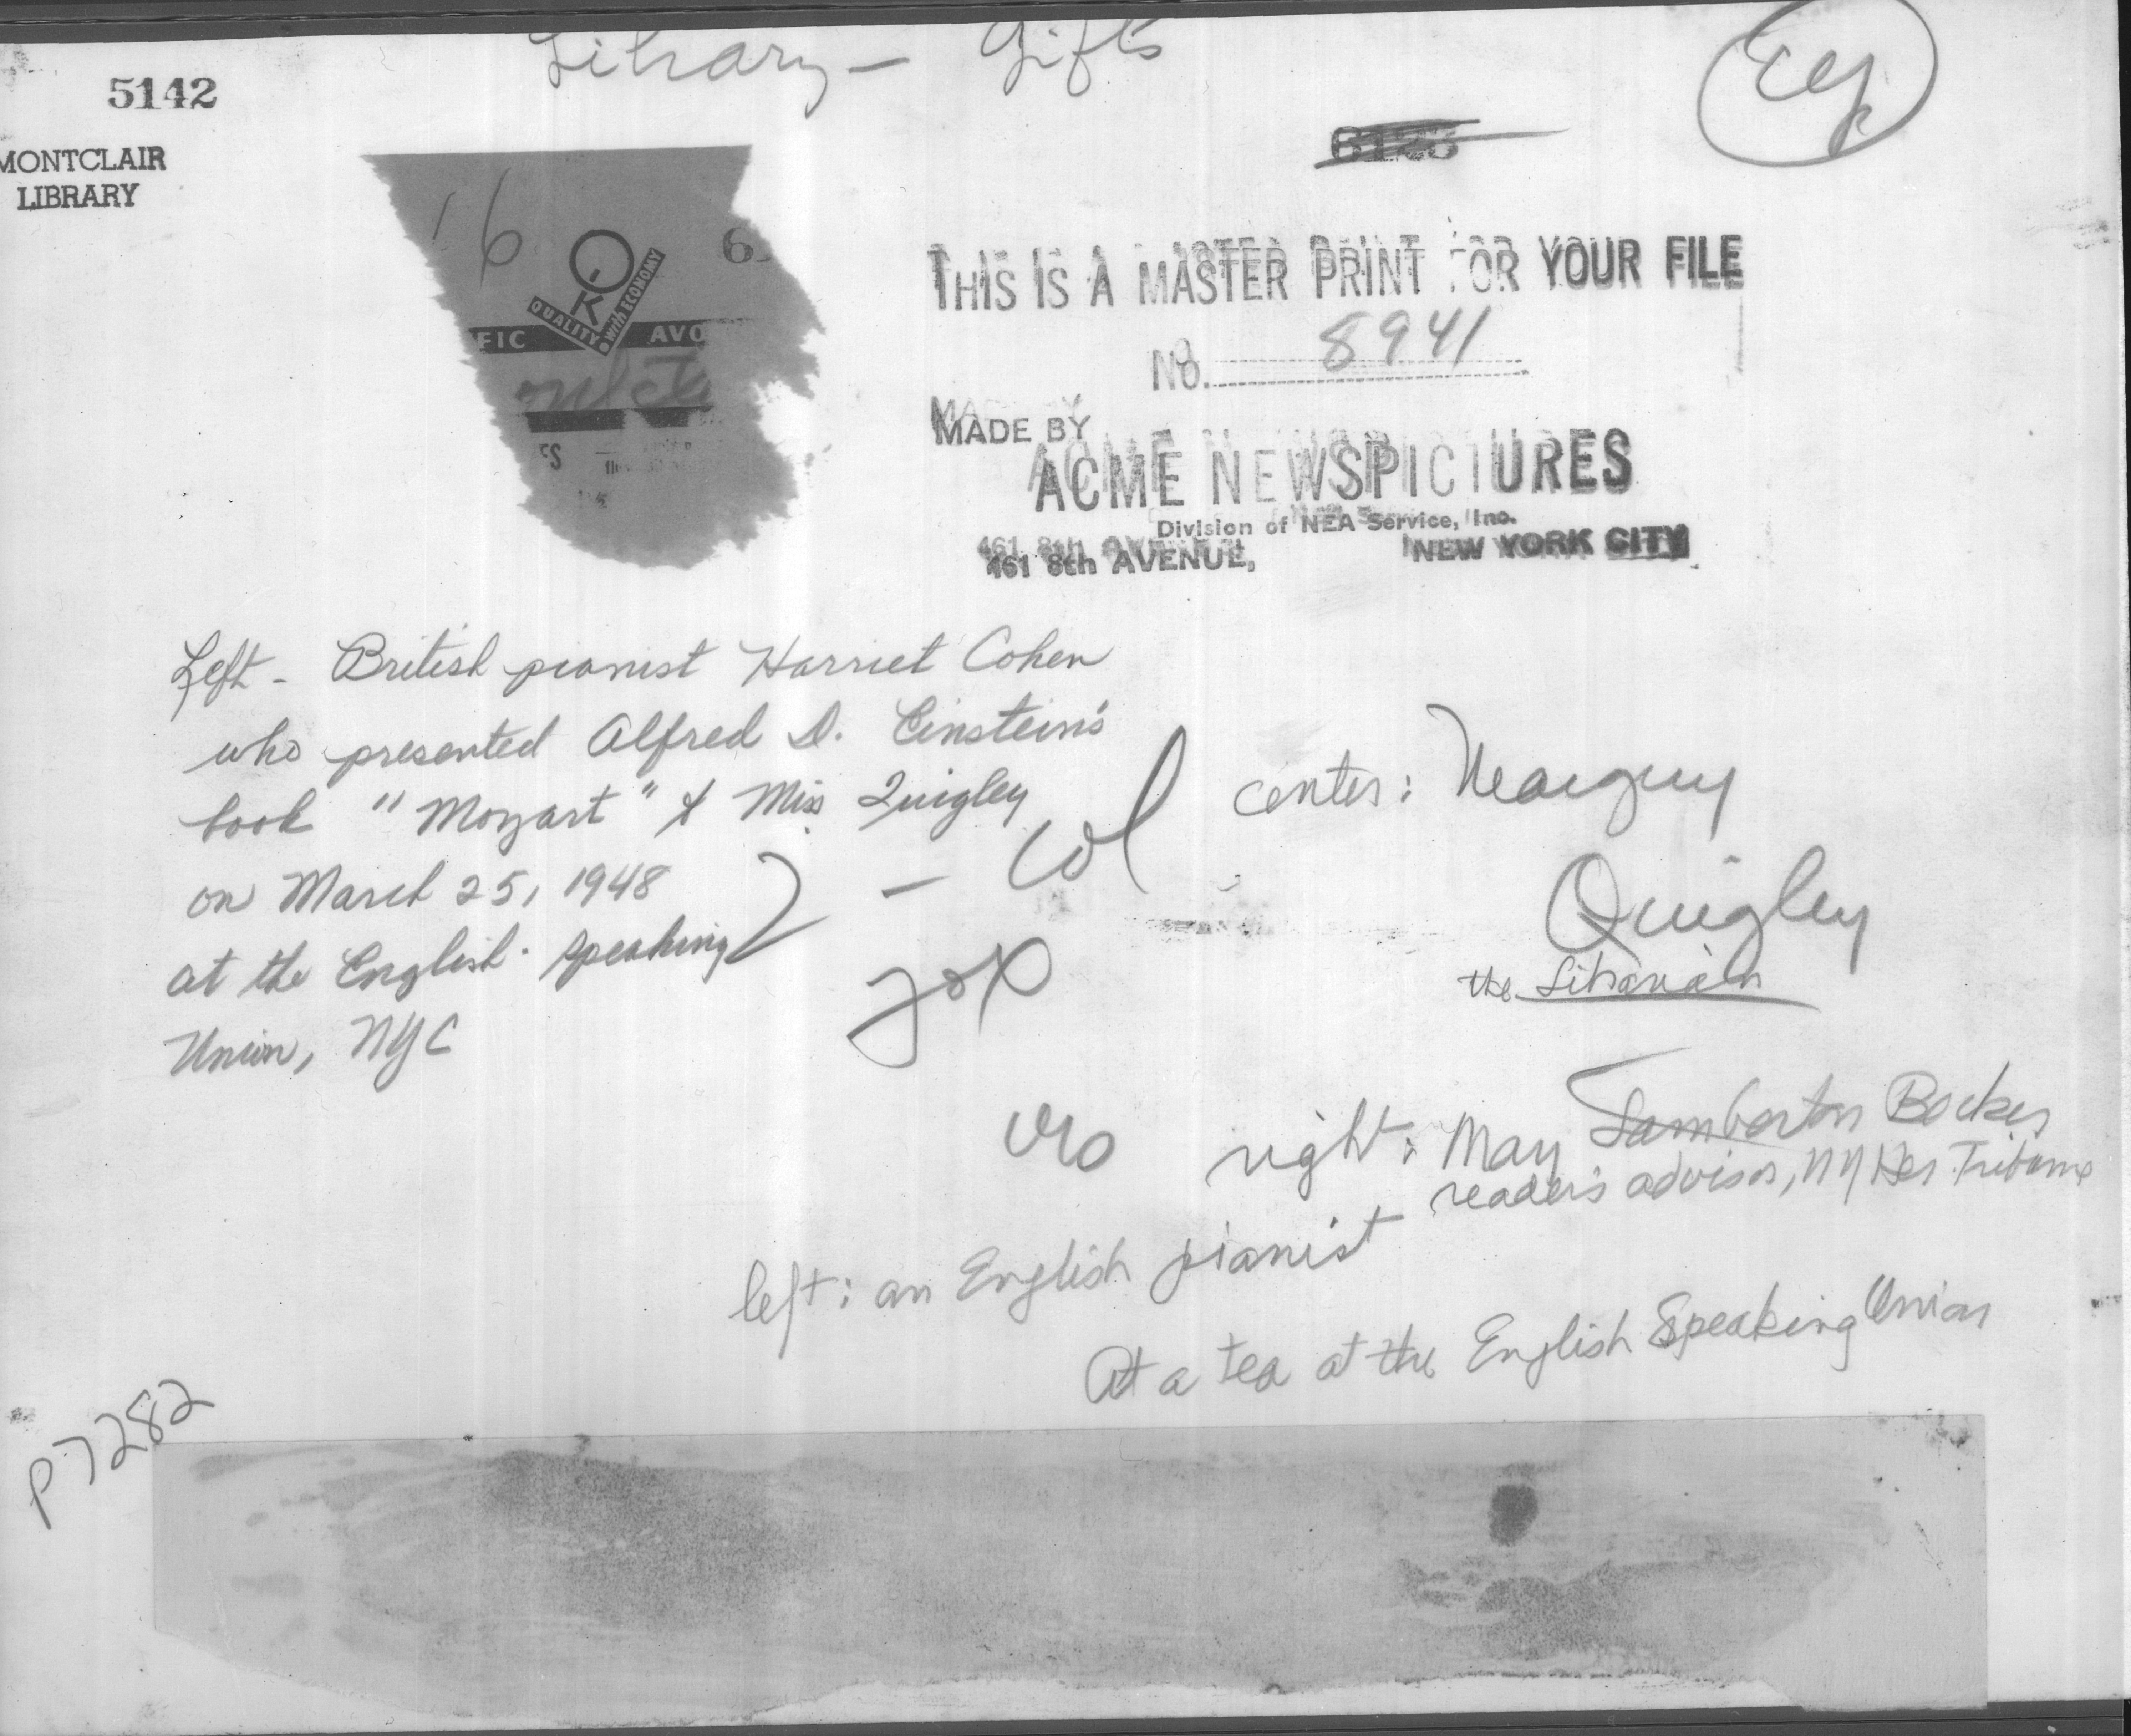 Library - Gifts
5142
MONTCLAIR
LIBRARY
6123
16
6
OK
QUALITY with ECONOMY
FIC
AVO
ES
THIS IS A MASTER PRINT FOR YOUR FILE
No. 8941
MADE BY
ACME NEWSPICTURES
Division of NEA Service, Inc.
461 8th AVENUE, NEW YORK CITY
Left - British pianist Harriet Cohen
who presented Alfred D. Einstein's
book "Mozart" & Miss Quigley
on March 25, 1948
at the English-speaking
Union, NYC
2 - col
center: Margery
Quigley
the Librarian
right: May Lamberton Becker
reader's advisor, NY Her Tribune
left: an English pianist
At a tea at the English Speaking Union
P7282